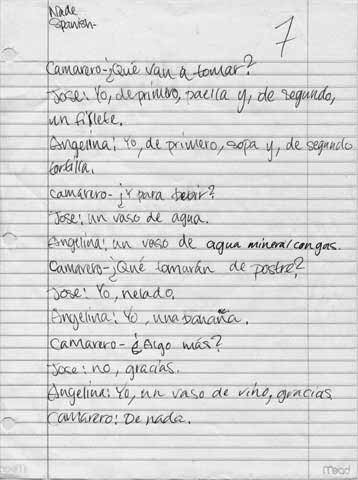 Nade
Spanish-
7
Camarero-¿Qué van a tomar?
Jose: Yo, de primero, paella y, de segundo,
un filete.
Angelina: Yo, de primero, sopa y, de segundo
tortilla.
Camarero- ¿Y para beber?
Jose: un vaso de agua.
Angelina: un vaso de agua mineral con gas.
Camarero-¿Qué tomarán de postre?
Jose: Yo, nelado.
Angelina: Yo, una banaña.
Camarero- ¿Algo más?
Jose: no, gracias.
Angelina: Yo, un vaso de viño, gracias
Camarero: De nada.
Mead